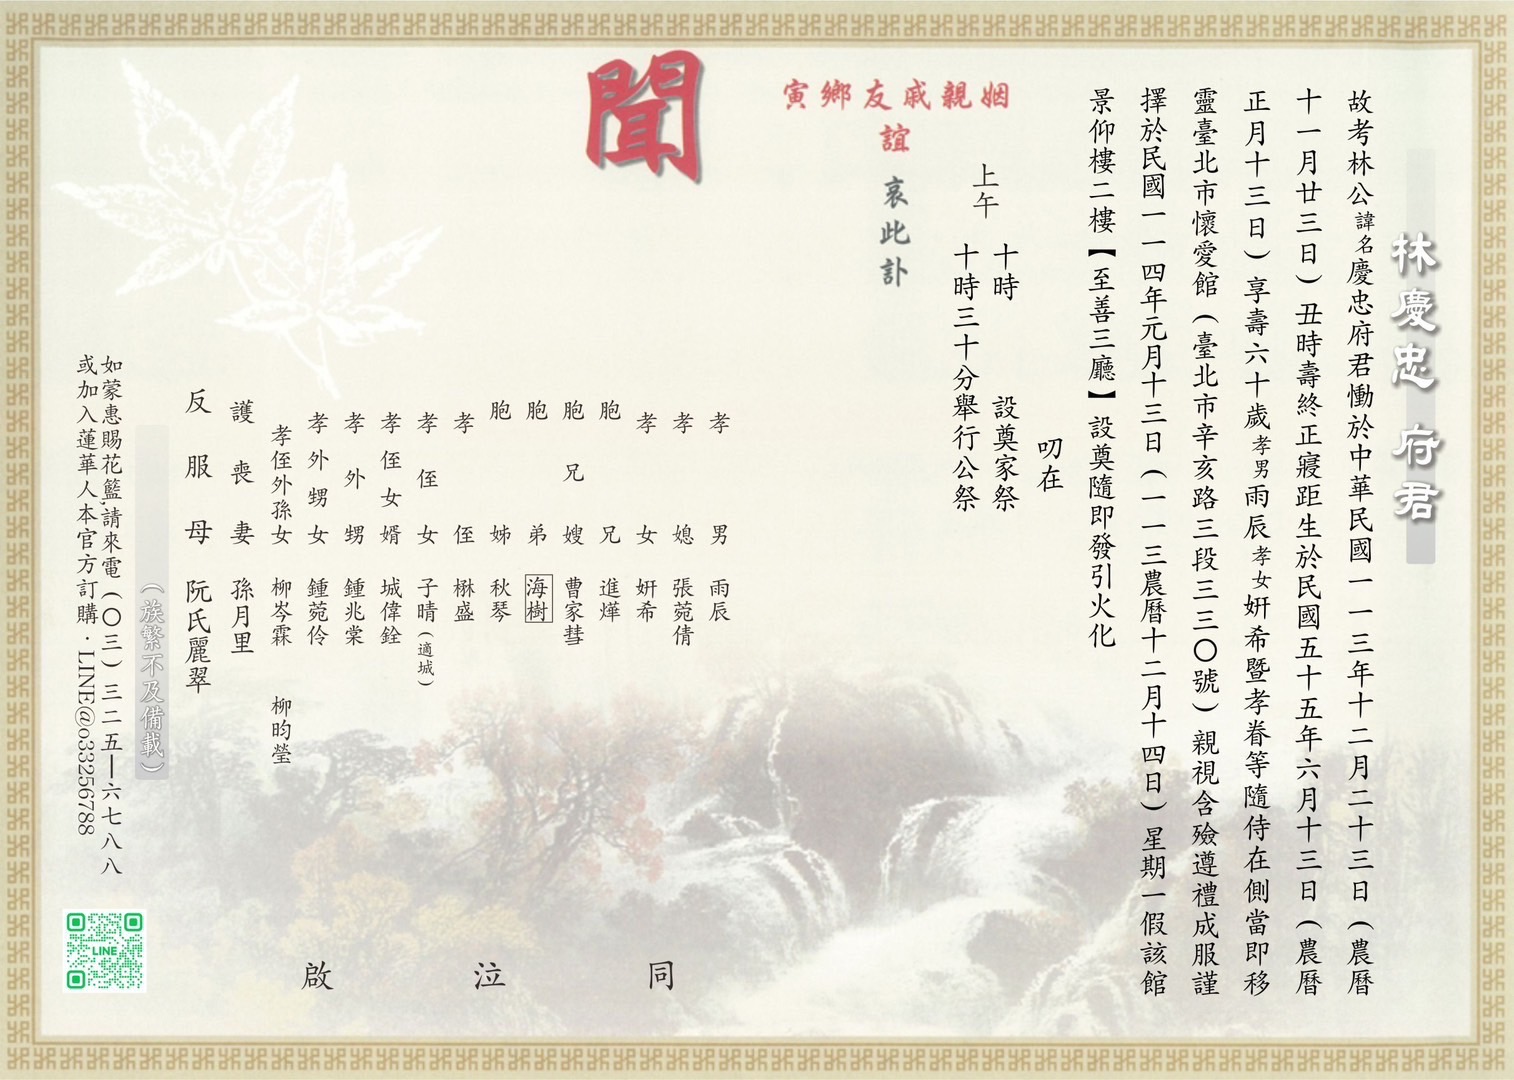 林慶忠 府君
故考林公諱名慶忠府君慟於中華民國一一三年十二月二十三日（農曆
十一月廿三日）丑時壽終正寢距生於民國五十五年六月十三日（農曆
正月十三日）享壽六十歲孝男雨辰孝女姸希暨孝眷等隨侍在側當即移
靈臺北市懷愛館（臺北市辛亥路三段三三〇號）親視含殮遵禮成服謹
擇於民國一一四年元月十三日（一一三農曆十二月十四日）星期一假該館
景仰樓二樓【至善三廳】設奠隨即發引火化
叨在
上午
十時 設奠家祭
十時三十分舉行公祭
寅鄉友戚親姻
誼
哀此訃
聞
孝男 雨辰
孝媳 張菀倩
孝女 姸希
胞兄 進燁
胞兄嫂 曹家彗
胞弟 海樹
胞姊 秋琴
孝侄 楙盛
孝侄女 子晴（適城）
孝侄女婿 城偉銓
孝外甥 鍾兆棠
孝外甥女 鍾菀伶
孝侄外孫女 柳岑霖 柳昀瑩
護喪妻 孫月里
反服母 阮氏麗翠
同泣啟
（族繁不及備載）
如蒙惠賜花籃,請來電（〇三）三二五—六七八八
或加入蓮華人本官方訂購·LINE@o33256788
LINE